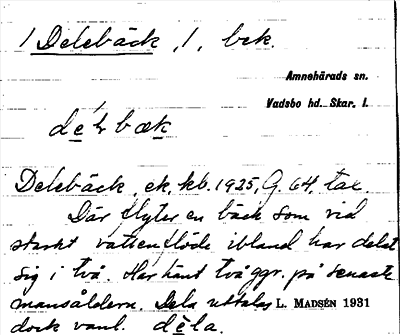 1 Delebäck, 1, bek.
Amnehärads sn.
Vadsbo hd. Skar. l.
de'l bæk
Delebäck, ek. kb. 1925, G. 64, tax.
Där flyter en bäck som vid
starkt vattenflöde ibland har delat
sig i två. Har hänt två ggr. på senaste
mansåldern. Dela uttalas L. MADSÉN 1931
dock vanl. dèla.